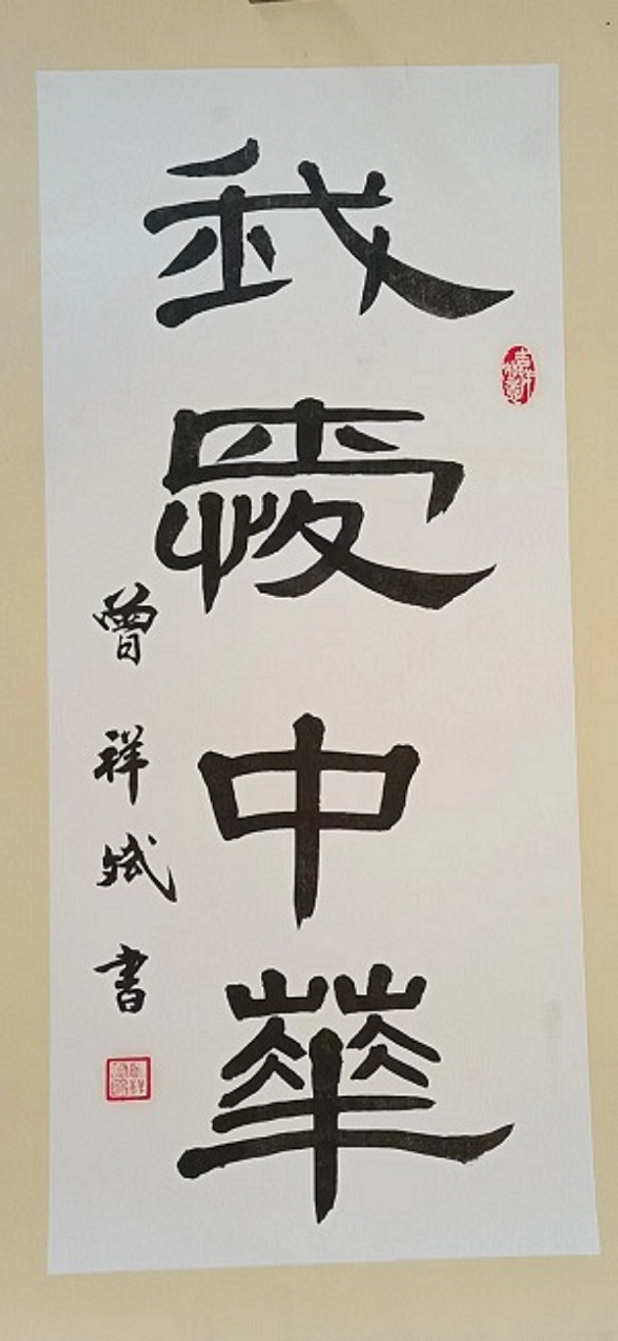 我愛中華
曾祥斌書